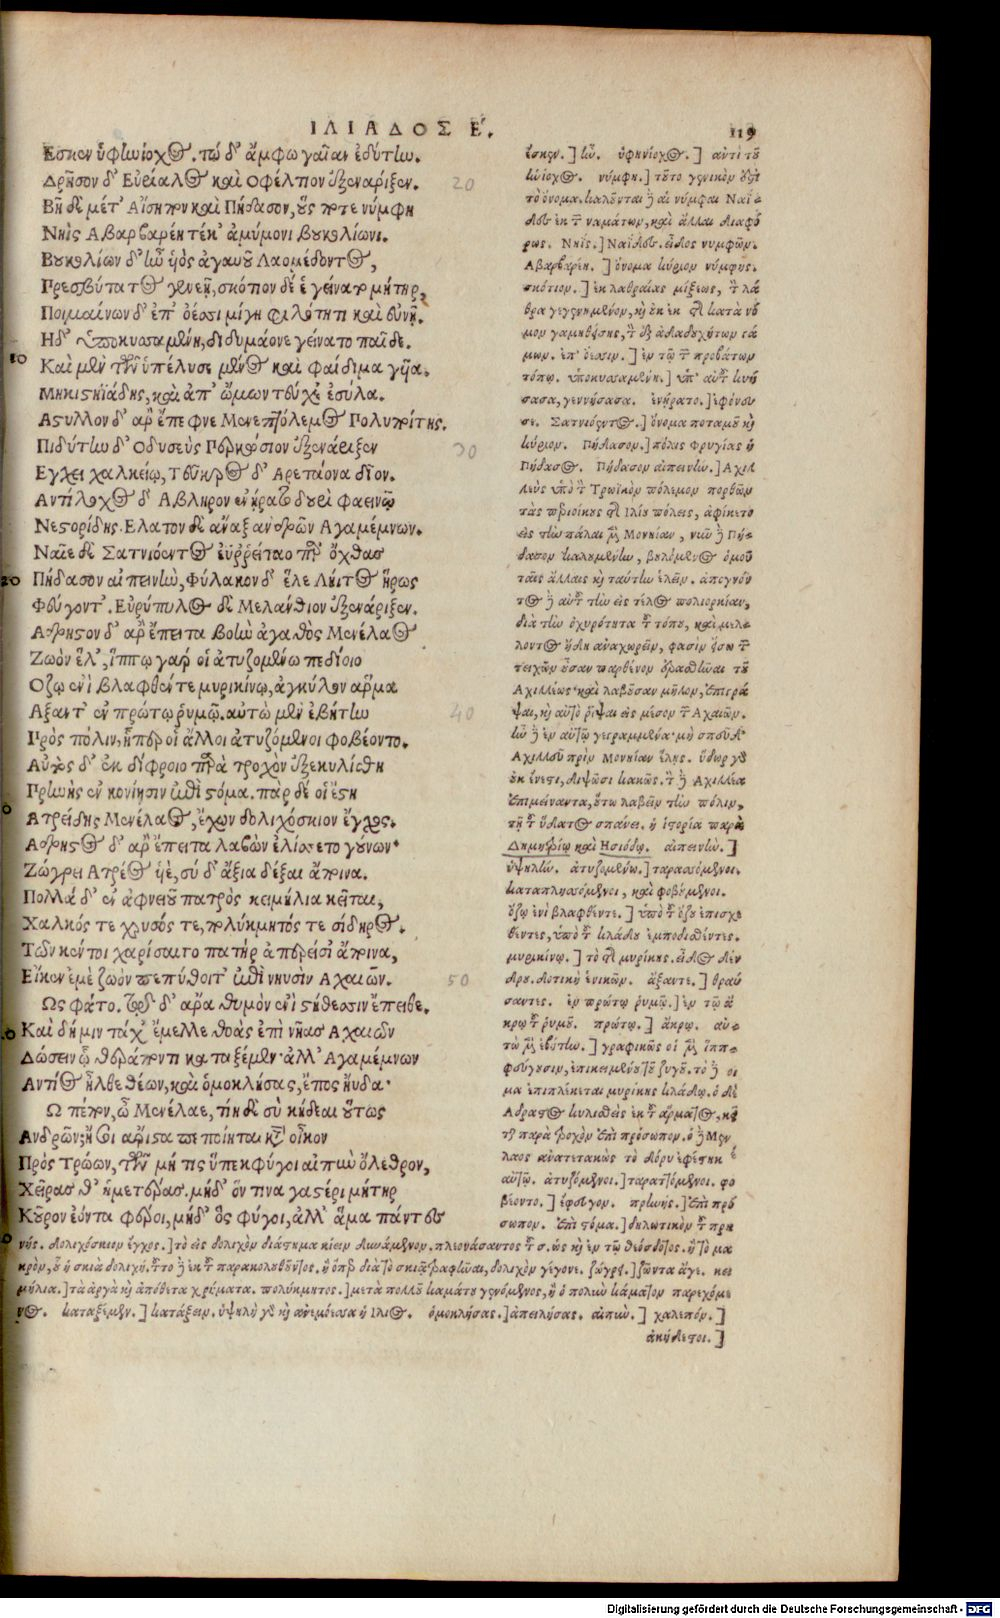 ΙΛΙΑΔΟΣ Ε. 119
Εσκεν ὑφηνίοχος. τὼ δ' ἄμφω γαῖαν ἐδύτην.
Δρῆσον δ' Εὐρίαλος καὶ Οφέλτιον ἐξενάριξεν.
Βῆ δὲ μέτ' Αἴσηπον καὶ Πήδασον, οὕς ποτε νύμφη
Νηὶς Αβαρβαρέη τέκ' ἀμύμονι βουκολίωνι.
Βουκολίων δ' ἦν ἡὸς ἀγαυοῦ Λαομέδοντος,
Πρεσβύτατος γενεῇ, σκότιον δέ ἑ γείνατο μήτηρ,
Ποιμαίνων δ' ἐπ' ὄεσσι μίγη φιλότητι καὶ εὐνῇ.
Ηδ' ὑποκυσσαμένη, διδυμάονε γείνατο παῖδε.
10 Καὶ μὲν τῶν ὑπέλυσε μένος καὶ φαίδιμα γῆα,
Μηκιστηϊάδης, καὶ ἀπ' ὤμων τεύχε' ἐσύλα.
Αστύλλον δ' ἂρ ἔπεφνε Μενεπτόλεμος Πολυποίτης.
Πιδύτην δ' Οδυσεὺς Περκόσιον ἐξενάριξεν
Εγχει χαλκείῳ, Τεῦκρος δ' Αρετάονα δῖον.
Αντίλοχος δ' Αβληρον ἐνήρατο δουρὶ φαεινῷ
Νεστορίδης. Ελατον δὲ ἄναξ ἀνδρῶν Αγαμέμνων.
Ναῖε δὲ Σατνιόεντος ἐϋρρείταο παρ' ὄχθας
20 Πήδασον αἰπεινὴν, Φύλακον δ' ἕλε Λήιτος ἥρως
Φεύγοντ'. Εὐρύπυλος δὲ Μελάνθιον ἐξενάριξεν.
Αδρηστον δ' ἂρ ἔπειτα βοὴν ἀγαθὸς Μενέλαος
Ζωὸν ἕλ', ἵππω γάρ οἱ ἀτυζομένω πεδίοιο
Οζῳ ἐνὶ βλαφθέντε μυρικίνῳ, ἀγκύλον ἅρμα
Αξαντ' ἐν πρώτῳ ῥυμῷ. αὐτὼ μὲν ἐβήτην
Πρὸς πόλιν, ᾗπερ οἱ ἄλλοι ἀτυζόμενοι φοβέοντο.
Αὐτὸς δ' ἐκ δίφροιο παρὰ τροχὸν ἐξεκυλίσθη
Πρηνὴς ἐν κονίῃσιν ἐπὶ στόμα. πὰρ δέ οἱ ἔστη
Ατρείδης Μενέλαος, ἔχων δολιχόσκιον ἔγχος.
Αδρηστος δ' ἂρ ἔπειτα λαβὼν ἐλίσσετο γούνων·
Ζώγρει Ατρέος ὑὲ, σὺ δ' ἄξια δέξαι ἄποινα.
Πολλὰ δ' ἐν ἀφνειοῦ πατρὸς κειμήλια κεῖται,
Χαλκός τε χρυσός τε, πολύκμητός τε σίδηρος.
Τῶν κέν τοι χαρίσαιτο πατὴρ ἀπερείσι' ἄποινα,
Εἴκεν ἐμὲ ζωὸν πεπύθοιτ' ἐπὶ νηυσὶν Αχαιῶν.
Ως φάτο. τῷ δ' ἄρα θυμὸν ἐνὶ στήθεσσιν ἔπειθε.
Καὶ δή μιν τάχ' ἔμελλε θοὰς ἐπὶ νῆας Αχαιῶν
Δώσειν ᾧ θεράποντι καταξέμεν· ἀλλ' Αγαμέμνων
Αντίος ἦλθε θέων, καὶ ὁμοκλήσας, ἔπος ἤυδα·
Ω πέπον, ὦ Μενέλαε, τίη δὲ σὺ κήδεαι οὕτως
Ανδρῶν; ἦ σοὶ ἄριστα πεποίηται κατ' οἶκον
Πρὸς Τρώων, τῶν μή τις ὑπεκφύγοι αἰπὺν ὄλεθρον,
Χεῖρας θ' ἡμετέρας. μήδ' ὅν τινα γαστέρι μήτηρ
Κοῦρον ἐόντα φέροι, μήδ' ὃς φύγοι, ἀλλ' ἅμα πάντες
20
30
40
50
ἔσκεν.] ἦν. ὑφηνίοχος.] ἀντὶ τοῦ
ἡνίοχος. νύμφη.] τοῦτο γενικὸν
τὸ ὄνομα. καλοῦνται δὲ αἱ νύμφαι Ναϊ-
άδες ἐκ τῶν ναμάτων, καὶ ἄλλαι διαφό
ρως. Νηΐς.] Ναϊάς. εἶδος νυμφῶν.
Αβαρβαρέη.] ὄνομα κύριον νύμφης.
σκότιον.] ἐκ λαθραίας μίξεως, τὸ λά
θρα γεγενημένον, καὶ οὐκ ἐκ τῆς κατὰ νό
μον γαμηθείσης, ἢ ἐξ ἀδᾳδουχήτων γά
μων. ἐπ' ὄεσσιν.] ἐν τῷ τῶν προβάτων
τόπῳ. ὑποκυσσαμένη.] ὑπ' αὐτοῦ κυή
σασα, γεννήσασα. ἐνήρατο.] ἐφόνευ
σε. Σατνιόεντος.] ὄνομα ποταμοῦ καὶ
κύριον. Πήδασον.] πόλις Φρυγίας ἡ
Πήδασος. Πήδασον αἰπεινήν.] Αχιλ
λεὺς ὑπὸ τὸ Τρωϊκὸν πόλεμον πορθῶν
τὰς περιοίκους τῆς Ιλίου πόλεις, ἀφίκετο
εἰς τὴν πάλαι μὲν Μονηνίαν, νῦν δὲ Πή-
δασον καλουμένην, βουλόμενος ὁμοῦ
ταῖς ἄλλαις καὶ ταύτην ἑλεῖν. ἀπογνόν
τος δὲ αὐτοῦ τὴν εἰς τέλος πολιορκίαν,
διὰ τὴν ὀχυρότητα τοῦ τόπου, καὶ μέλ-
λοντος ἤδη ἀναχωρεῖν, φασὶν ἔσω τῶν
τειχῶν οὖσαν παρθένον ἐρασθῆναι τοῦ
Αχιλλέως· καὶ λαβοῦσαν μῆλον, ἐπιγρά
ψαι, καὶ αὐτὸ ῥίψαι εἰς μέσον τῶν Αχαιῶν.
ἦν δὲ ἐν αὐτῷ γεγραμμένα· μὴ σπεῦδ'
Αχιλλεῦ πρὶν Μονηνίαν ἕλῃς. ὕδωρ γὰρ
οὐκ ἔνεστι, διψῶσι κακῶς. τὸν δὲ Αχιλλέα
ἐπιμείναντα, οὕτω λαβεῖν τὴν πόλιν,
τῇ τοῦ ὕδατος σπάνει. ἡ ἱστορία παρὰ
Δημητρίῳ καὶ Ησιόδῳ. αἰπεινήν.]
ὑψηλήν. ἀτυζομένω.] ταρασσόμενοι.
καταπλησσόμενοι, καὶ φοβούμενοι.
ὄζῳ ἐνὶ βλαφθέντε.] ὑπὸ τοῦ ὄζου ἐπισχε
θέντες, ὑπὸ τοῦ κλάδου ἐμποδισθέντες.
μυρικίνῳ.] τὸ τῆς μυρίκης. εἶδος δέν
δρου. δοτικὴ ἑνικῶν. ἄξαντε.] θραύ
σαντες. ἐν πρώτῳ ῥυμῷ.] ἐν τῷ ἄ
κρῳ τοῦ ῥυμοῦ. πρώτῳ.] ἄκρῳ. αὐ-
τὼ μὲν ἐβήτην.] γραφικῶς οἱ μὲν ἵππ-
φεύγουσιν, ἐπικειμένου τοῦ ζυγοῦ. τὸ δὲ
μα ἐπιπλέκεται μυρίκης κλάδῳ. ὁ δὲ
Αδραστος κυλισθεὶς ἐκ τοῦ ἅρματος, κεῖ
ται παρὰ τροχὸν ἐπὶ πρόσωπον. ὁ δὲ Μεν
λαος ἀνατετακὼς τὸ δόρυ ἐφέστηκ
αὐτῷ. ἀτυζόμενοι.] ταρατόμενοι. φο
βέοντο.] ἔφευγον. πρηνής.] ἐπὶ πρό
σωπον. ἐπὶ στόμα.] δηλωτικὸν τοῦ πρη
νής. δολιχόσκιον ἔγχος.] τὸ εἰς δολιχὸν διάστημα κίειν δυνάμενον. πλεονάσαντος τοῦ σ. ὡς καὶ ἐν τῷ θεόσδοτος. ἢ τὸ μα
κρὸν, οὗ ἡ σκιὰ δολιχή. τοῦτο δὲ ἐκ τοῦ παρακολουθοῦντος. ἢ ὅπερ διὰ τὸ σκιᾷ γραφῆναι, δολιχὸν γέγονε. ζώγρει.] ζῶντα ἄγε. κει
μήλια.] τὰ ἀργὰ καὶ ἀπόθετα χρήματα. πολύκμητος.] μετὰ πολλοῦ καμάτου γενόμενος, ἢ ὁ πολὺν κάματον παρεχόμε
νος. καταξέμεν.] κατάξειν. ὑψηλὴ γὰρ καὶ ἀνεμόεσσα ἡ Ιλιος. ὁμοκλήσας.] ἀπειλήσας. αἰπύν.] χαλεπόν.]
ἀκήδεστοι.]
Digitalisierung gefördert durch die Deutsche Forschungsgemeinschaft - DFG